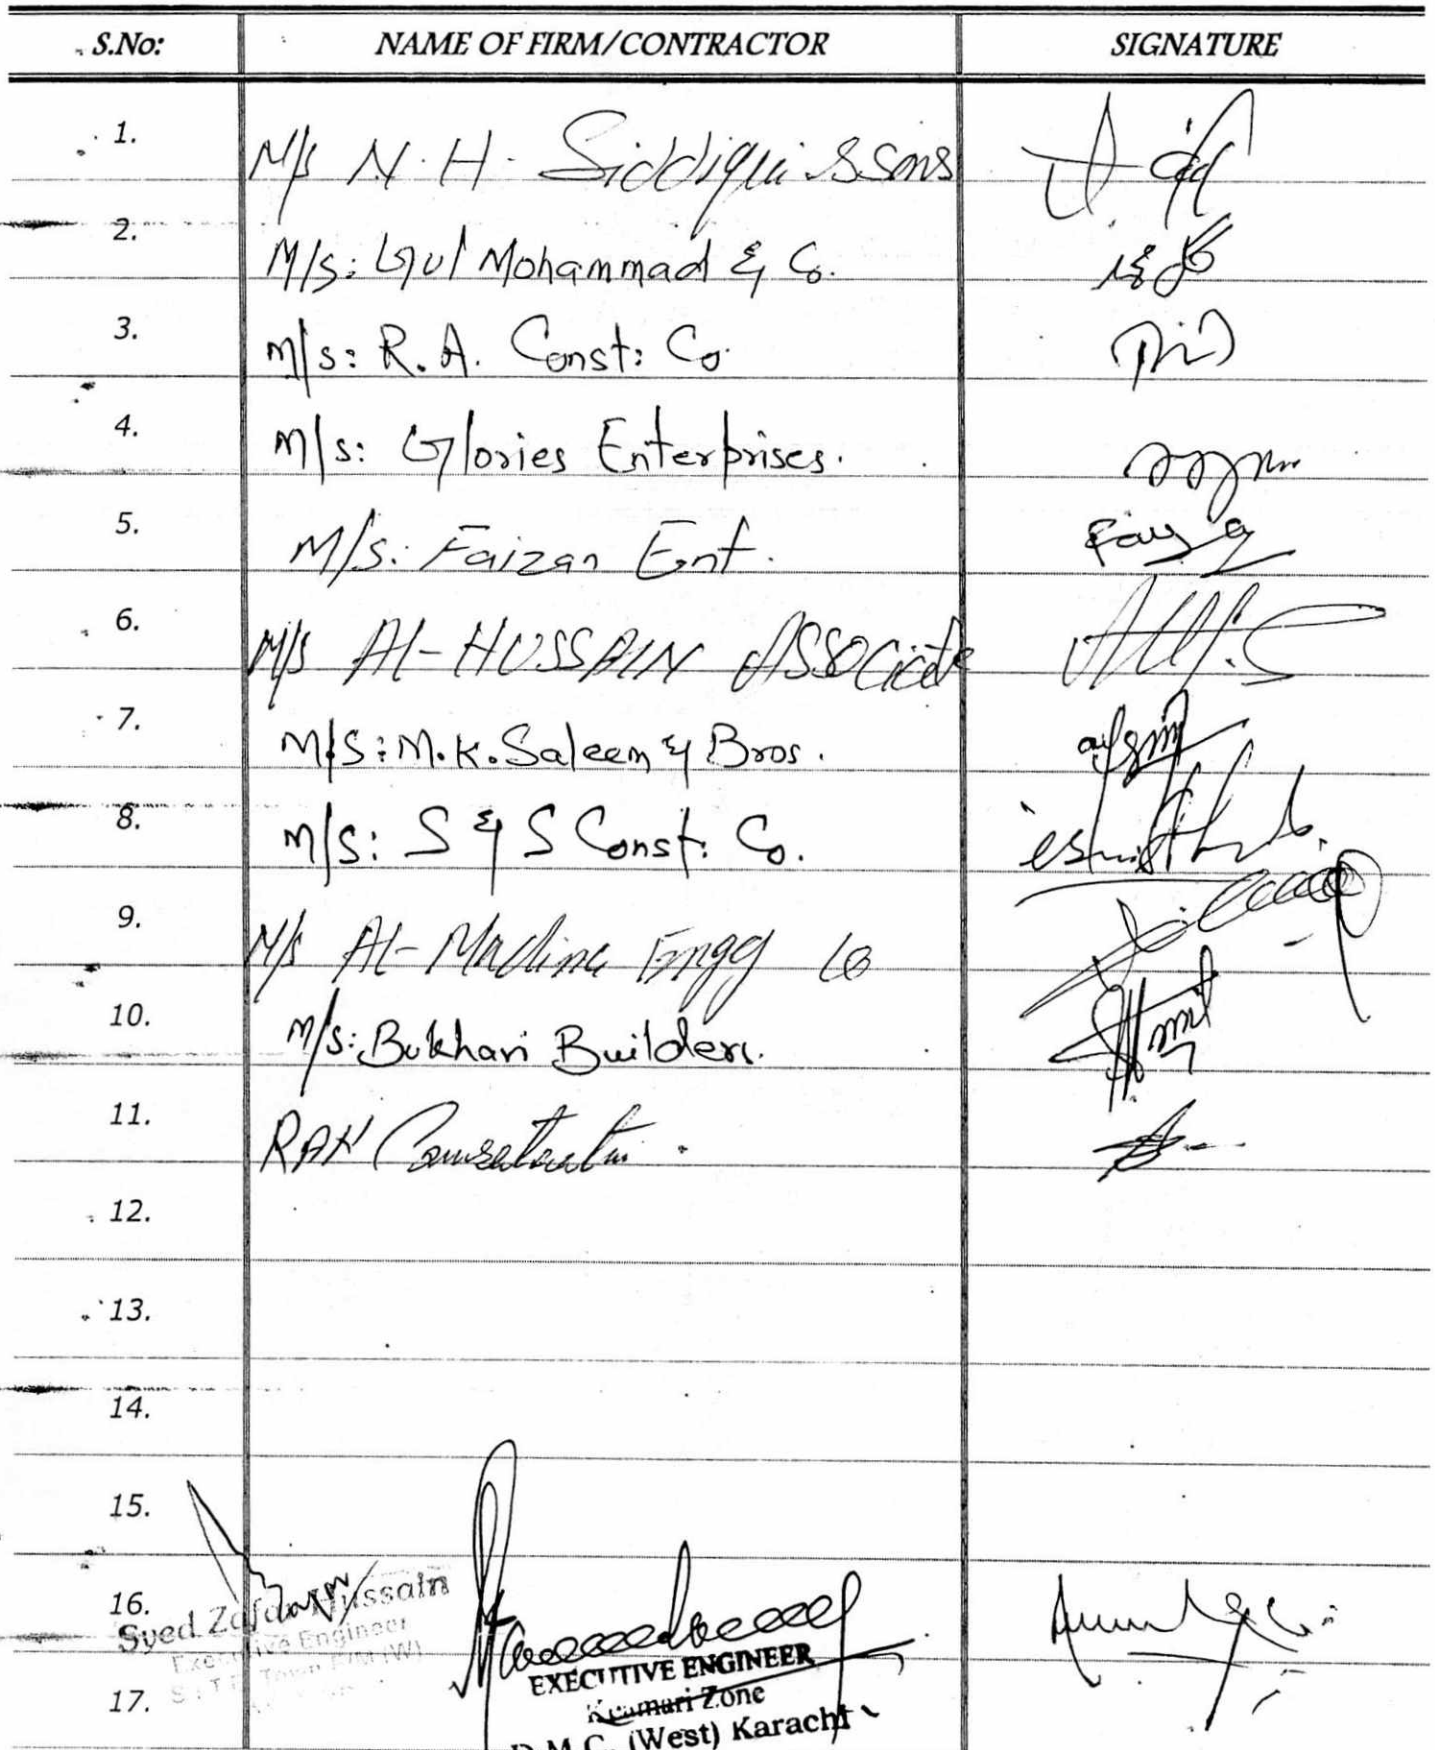 S.No: NAME OF FIRM/CONTRACTOR SIGNATURE
1. M/s N.H. Siddiqui & Sons
2. M/s: Gul Mohammad & Co.
3. M/s: R.A. Const: Co.
4. M/s: Glories Enterprises.
5. M/s: Faizan Ent.
6. M/s Al-HUSSAIN Associate
7. M/S: M.K. Saleem & Bros.
8. M/S: S & S Const: Co.
9. M/s Al-Madina Engg Co
10. M/s: Bukhari Builders.
11. RAK
12.
13.
14.
15.
16.
Syed Zafar Hussain
Executive Engineer
EXECUTIVE ENGINEER
17.
Keamari Zone
D.M.C. (West) Karachi